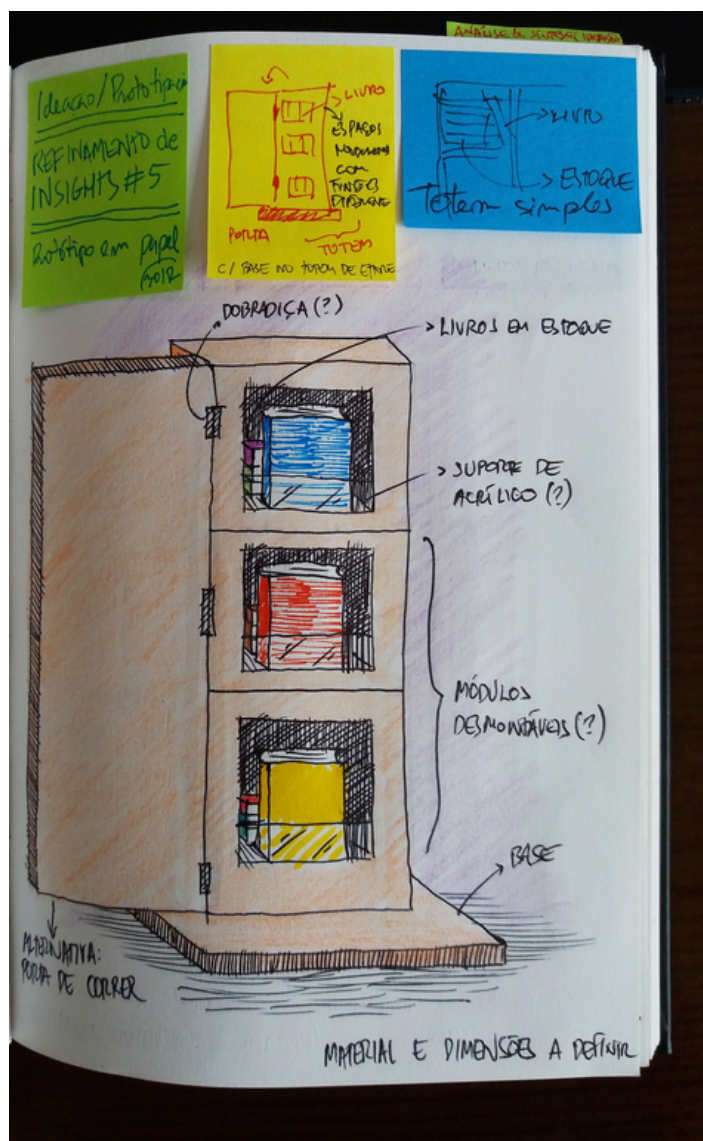 ANÁLISE DE SÍNTESE/IDEAÇÃO
Ideação/Prototipação
REFINAMENTO de
INSIGHTS #5
Protótipo em papel
LIVRO
ESPAÇOS
COM
PORTA
TOTEM
C/ BASE NO TOTEM DE
LIVRO
ESTOQUE
Totem simples
DOBRADIÇA (?)
LIVROS EM ESTOQUE
SUPORTE DE
ACRÍLICO (?)
MÓDULOS
DESMONTÁVEIS (?)
BASE
ALTERNATIVA:
PORTA DE CORRER
MATERIAL E DIMENSÕES A DEFINIR